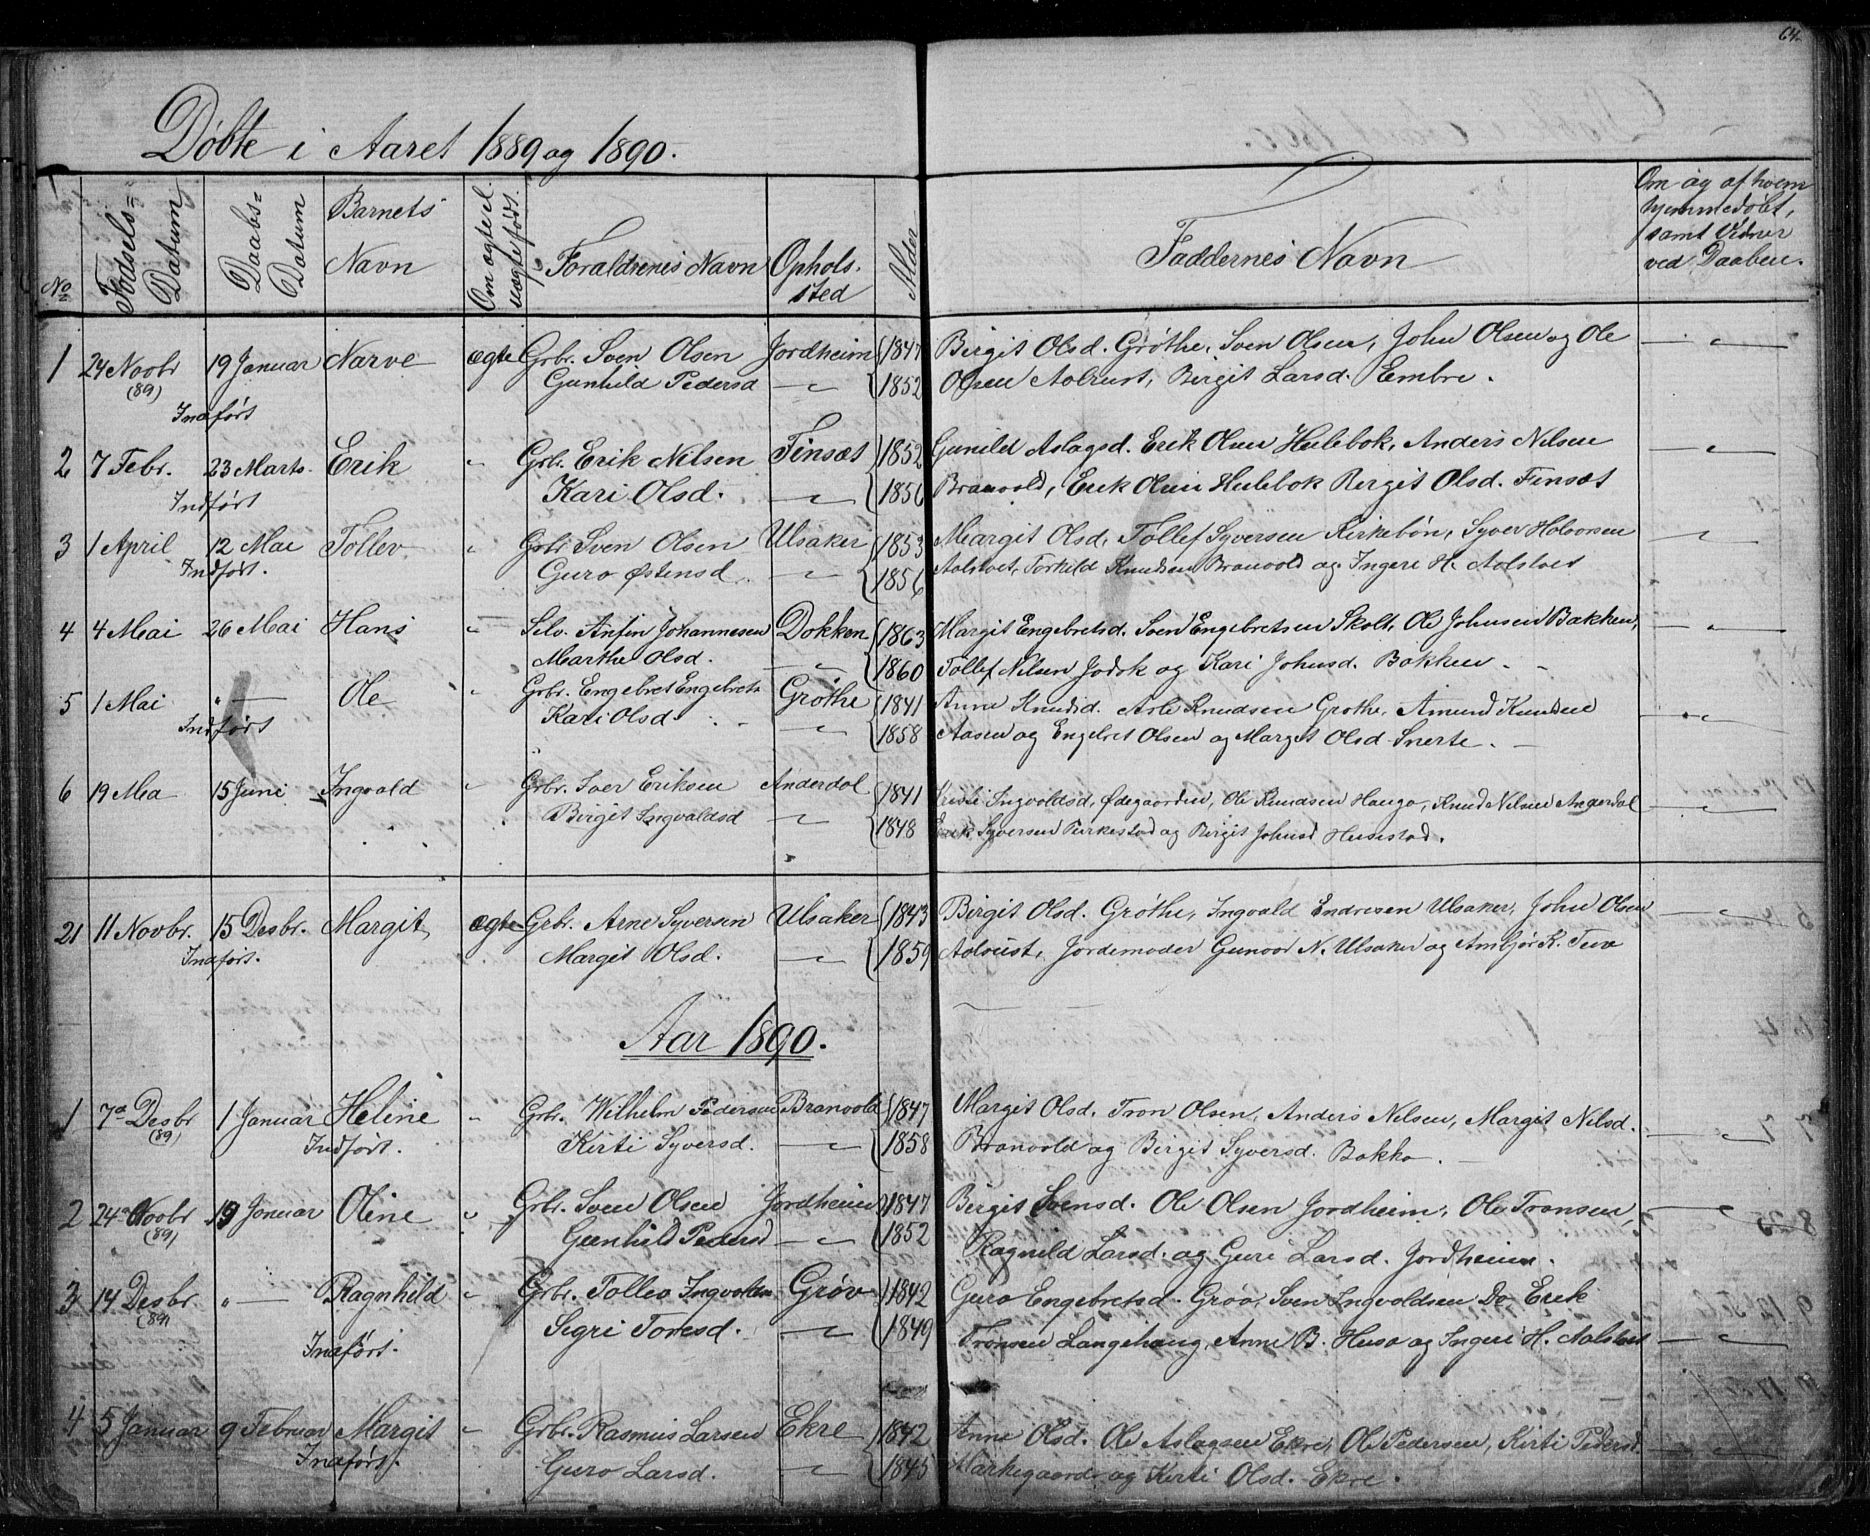 64.
Døbte i Aaret 1889 og 1890.
No Fødsels= Datum Daabs= Datum Barnets Navn Om ægte el. uægte født. Forældrenes Navn Opholssted Alder Faddernes Navn Om og af hvem hjemmedøbt, samt Vidner ved Daaben.
1 24 Novbr 19 Januar Narve ægte Grbr. Sven Olsen Jordheim 1847 Birgit Olsd. Grøthe, Sven Olsen, John Olsen og Ole
(89) Gunhild Pedersd 1852 Olsen Aalrust, Birgit Larsd. Embre.
Indført
2 7 Febr. 23 Marts. Erik " Grbr. Erik Nilsen Finsæt 1852 Gunild Aslagsd. Erik Olsen Hulebok, Anders Nilsen
Indført Kari Olsd. " 1856 Branvold, Erik Olsen Hulebok Birgit Olsd. Finsæt
3 1 April 12 Mai Tollev " Grbr Sven Olsen Ulsaker 1853 Margit Olsd, Tollef Syversen Kirkebøn, Syver Halvorsen
Indført. Guro Østensd. " 1856 Aalstvet, Torkild Knudsen Branvold og Ingeri H. Aalstvet
4 4 Mai 26 Mai Hans " Selv. Anfin Johannesen Dokken 1863 Margit Engebretsd. Sven Engebretsen Skolt, Ole Johnsen Bakken,
Marthe Olsd. " 1860 Tollef Nilsen Jordsk og Kari Johnsd. Bakken.
5 1 Mai " Ole " Grbr. Engebret Engebrets Grøthe 1841 Anne Knudsd. Arle Knudsen Grøthe, Amund Knudsen
Indført Kari Olsd. " 1858 Aasen og Engebret Olsen og Marget Olsd Snerte.
6 19 Mai 15 Juni Ingvald " Grbr. Iver Eriksen Anderdal 1841 Ingvoldsd, Ødegaarden, Ole Knudsen Hauga, Knud Nilsen Angerdal
Birgit Ingvaldsd " 1848 Erik Syversen Perkestad og Birgit Johnsd Husestad.
21 11 Novbr. 15 Desbr. Margit ægte Grbr. Arne Syversen Ulsaker 1843 Birgit Olsd. Grøthe, Ingvald Endresen Ulsaker, John Olsen
Indført. Margit Olsd. " 1859 Aalrust, Jordemoder Gunvor N. Ulsaker og Ambjør K. Tuve
Aar 1890.
1 7de Desbr 1 Januar Heline " Grbr. Wilhelm Pedersen Branvold 1847 Margit Olsd. Tron Olsen, Anders Nilsen, Margit Nilsd.
(89) Indført. Kirti Syversd. " 1858 Branvold og Birgit Syversd. Bakko.
2 24de Novbr 19 Januar Oline " Grbr. Sven Olsen Jordheim 1847 Birgit Svensd. Ole Olsen Jordheim, Ole Tronsen,
(89) Gunhild Pedersd " 1852 Ragnild Larsd. og Guri Larsd. Jordheim.
3 14 Desbr " Ragnhild " Grbr. Tollev Ingvoldsn Grøv 1842 Guro Engebretsd. Grøv, Sven Ingvoldsen Do Erik
(89) Indført. Sigri Toresd. " 1849 Tronsen Langehaug, Anne B. Huso og Ingeri H. Aalstvet
4 5 Januar 9 Februar Margit " Grbr. Rasmus Larsen Ekre 1842 Anne Olsd. Ole Aslagsen Ekre, Ole Pedersen, Kirti Pedersd
Indført. Guro Larsd. " 1845 Markegaard og Kirti Olsd. Ekre.